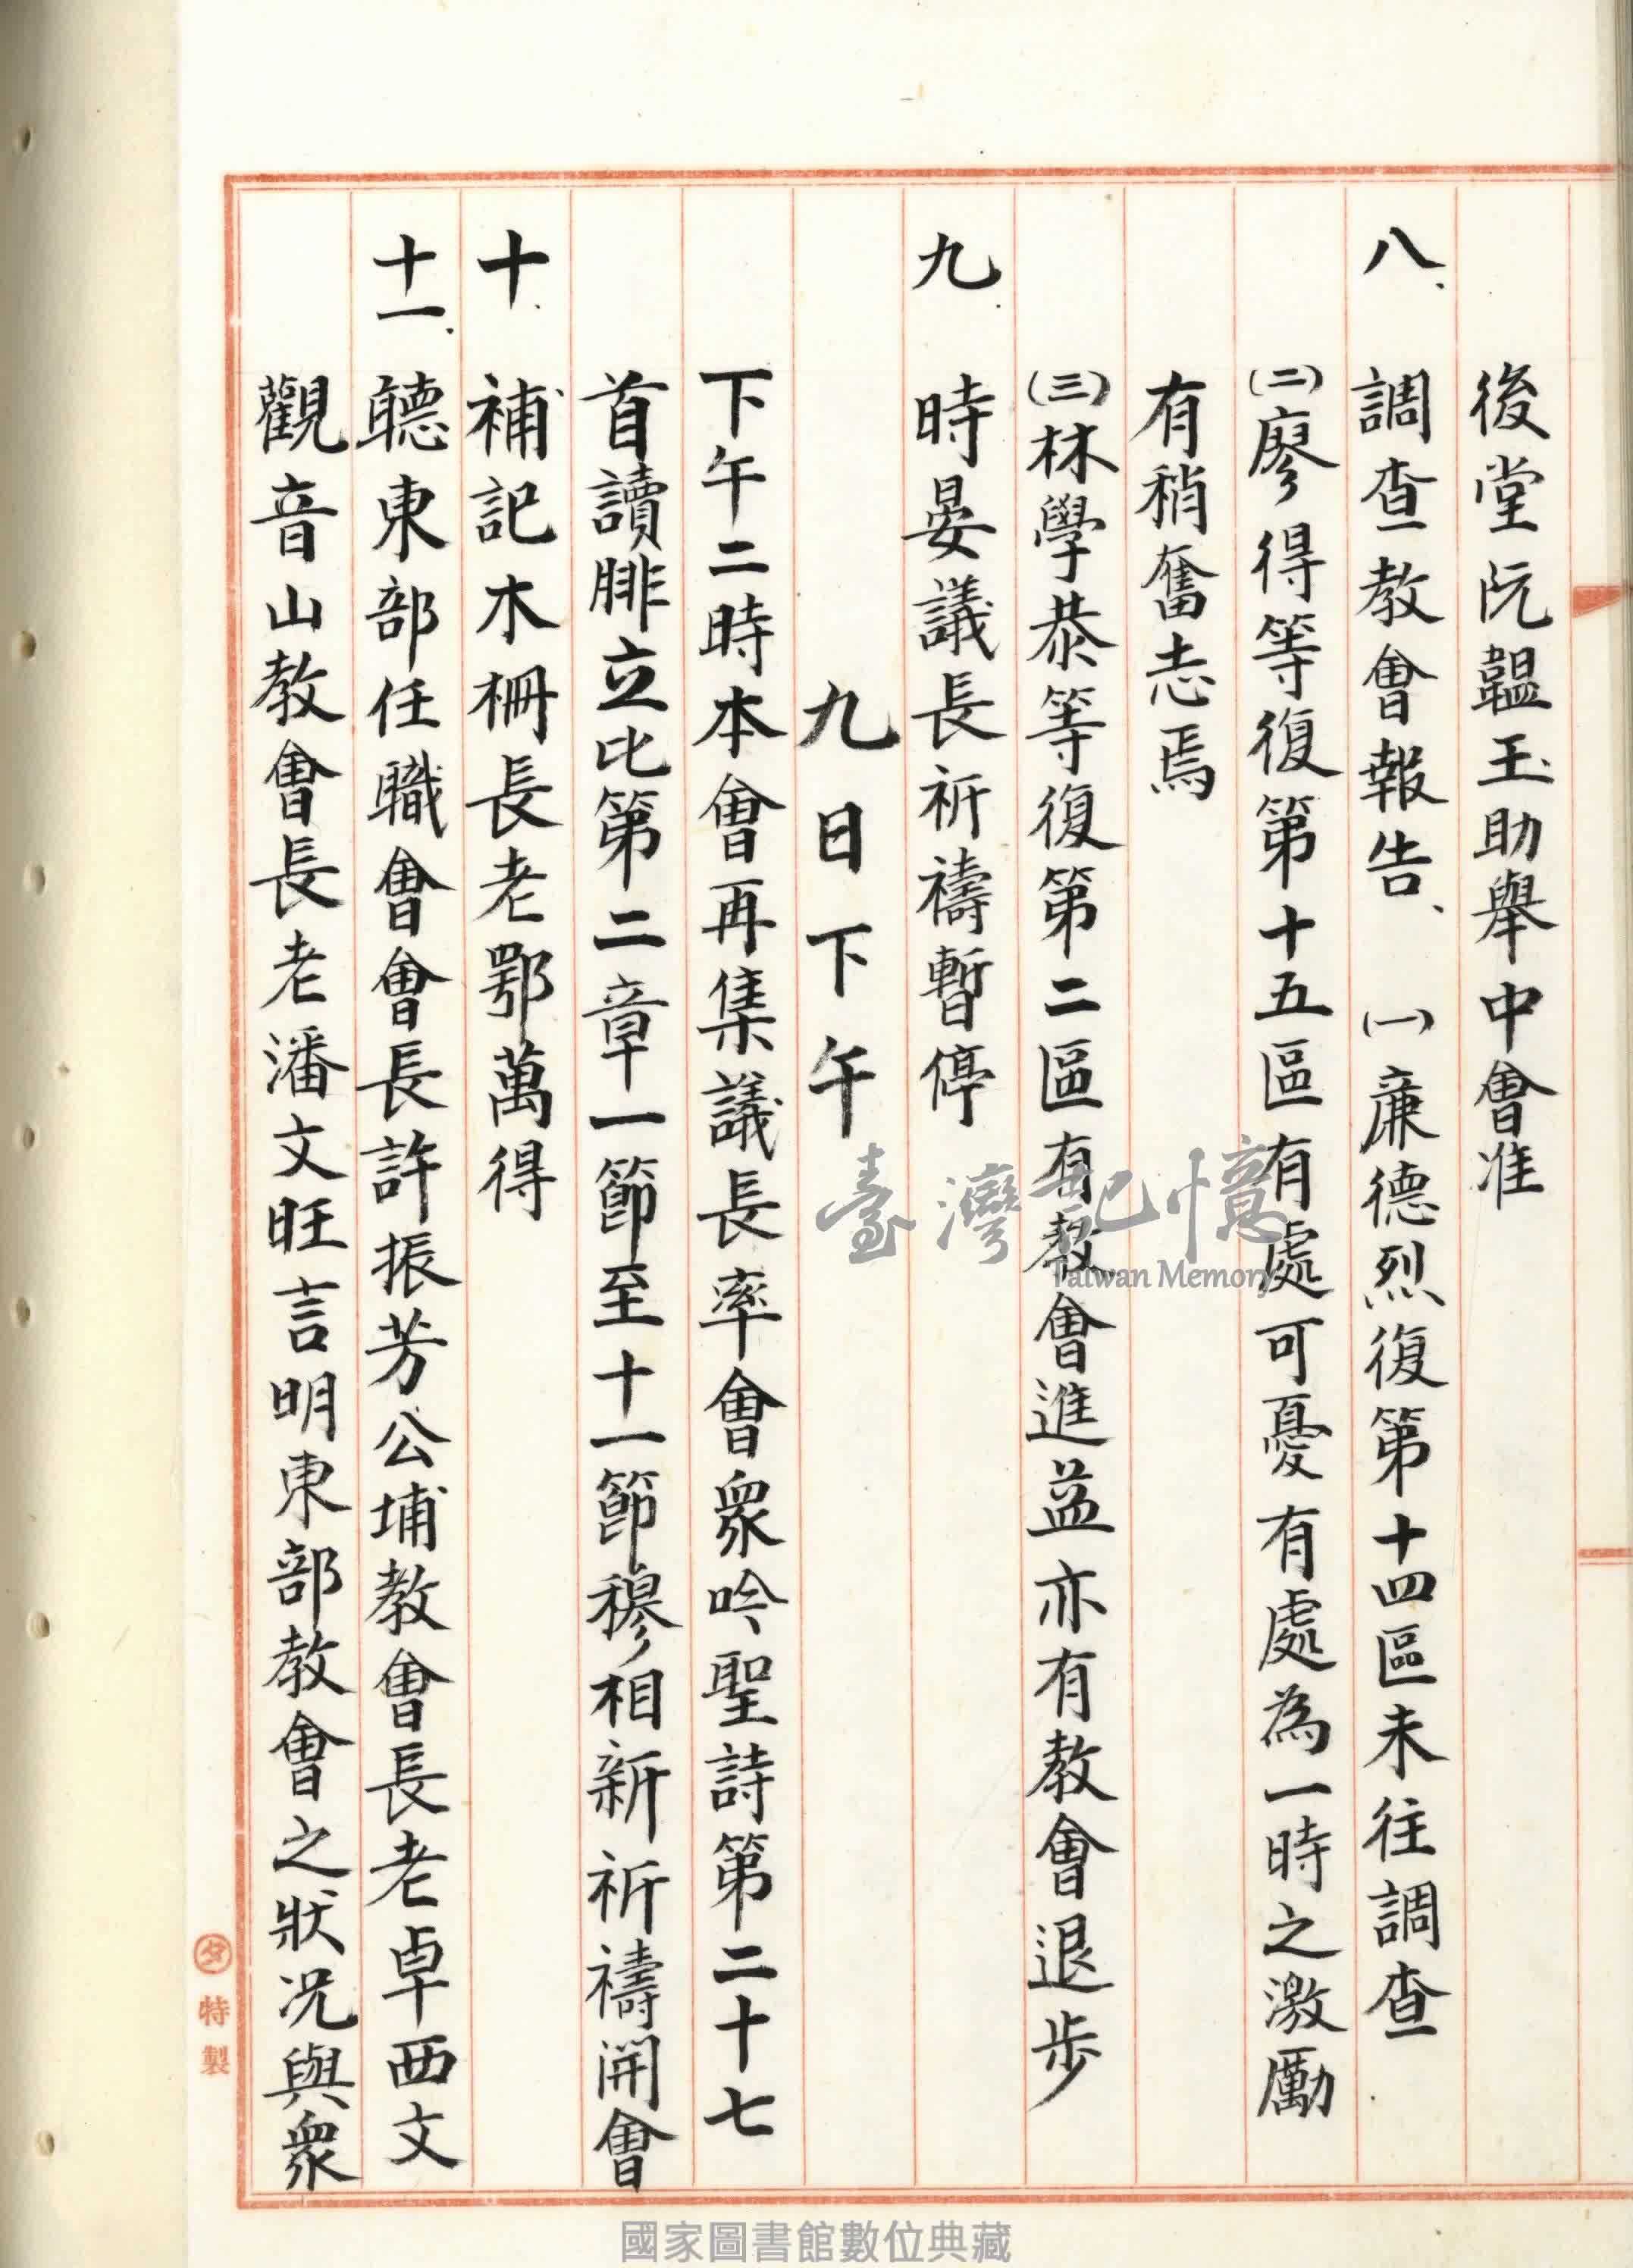 後堂阮韞玉助舉中會准
八、調查教會報告、㈠廉德烈復第十四區未往調查
㈡廖得等復第十五區有處可憂有處為一時之激勵
有稍奮志焉
㈢林學恭等復第二區有教會進益亦有教會退步
九、時晏議長祈禱暫停
九日下午
下午二時本會再集議長率會眾吟聖詩第二十七
首讀腓立比第二章一節至十一節穆相新祈禱開會
十、補記木柵長老鄂萬得
十一、聽東部任職會會長許振芳公埔教會長老卓西文
觀音山教會長老潘文旺言明東部教會之狀況與眾
タ特製
臺灣記憶
Taiwan Memory
國家圖書館數位典藏